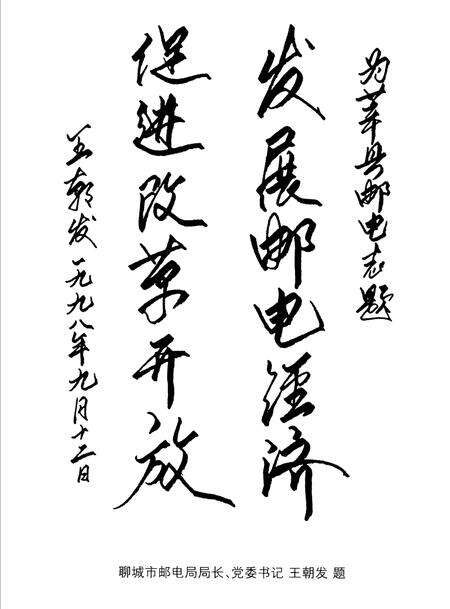 为莘县邮电志题
发展邮电经济
促进改革开放
王朝发 一九九八年九月十二日
聊城市邮电局局长、党委书记 王朝发 题